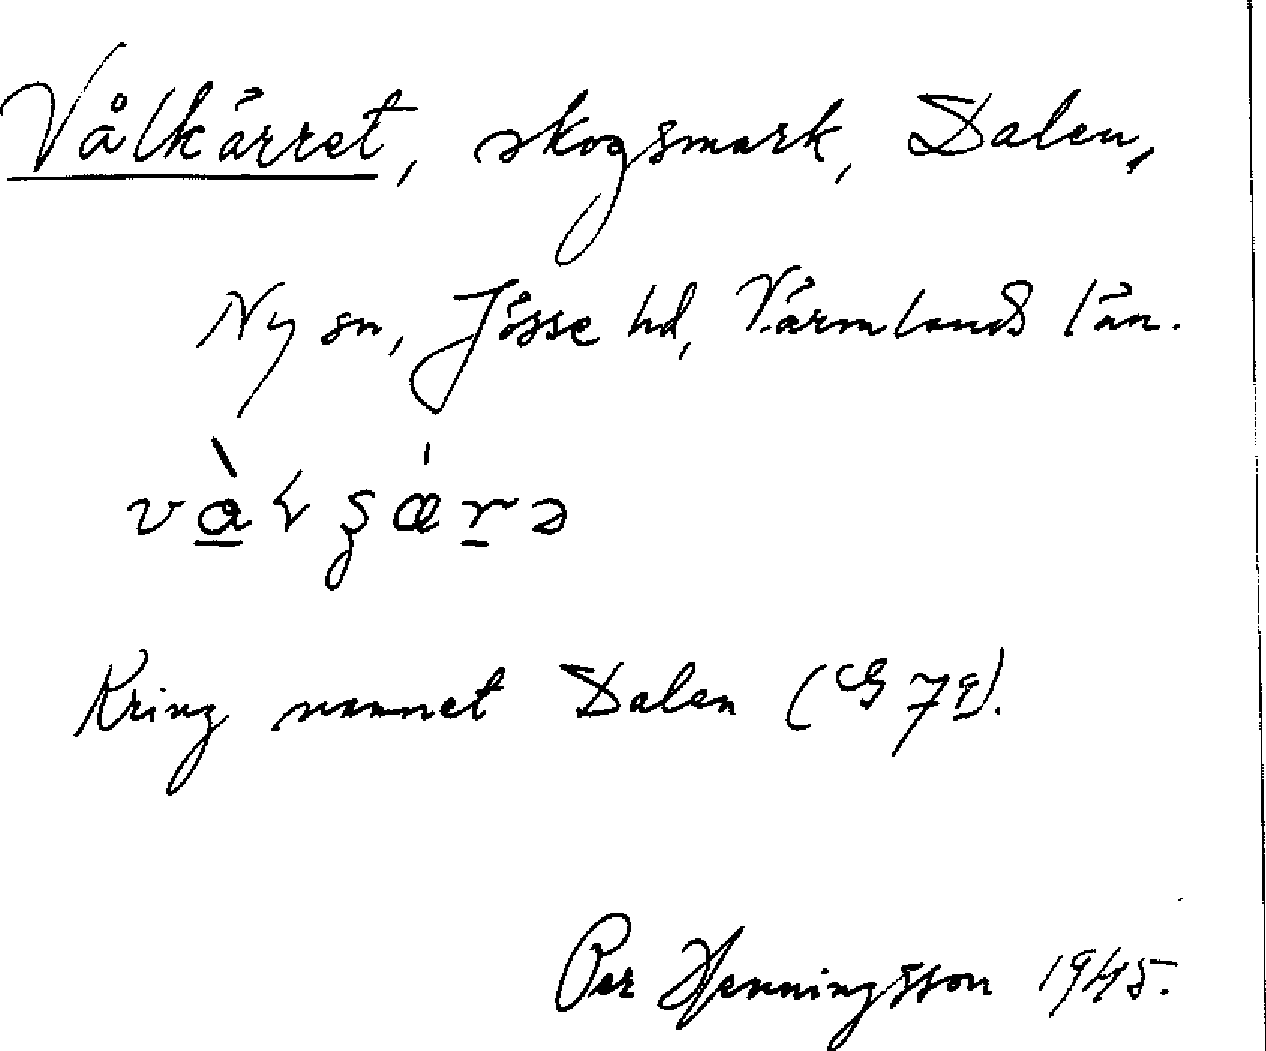 Vålkärret, skogsmark, Dalen,
Ny sn, Jösse hd, Värmlands län.
Kring namnet Dalen (G 7e).
Per Henningsson 1945.